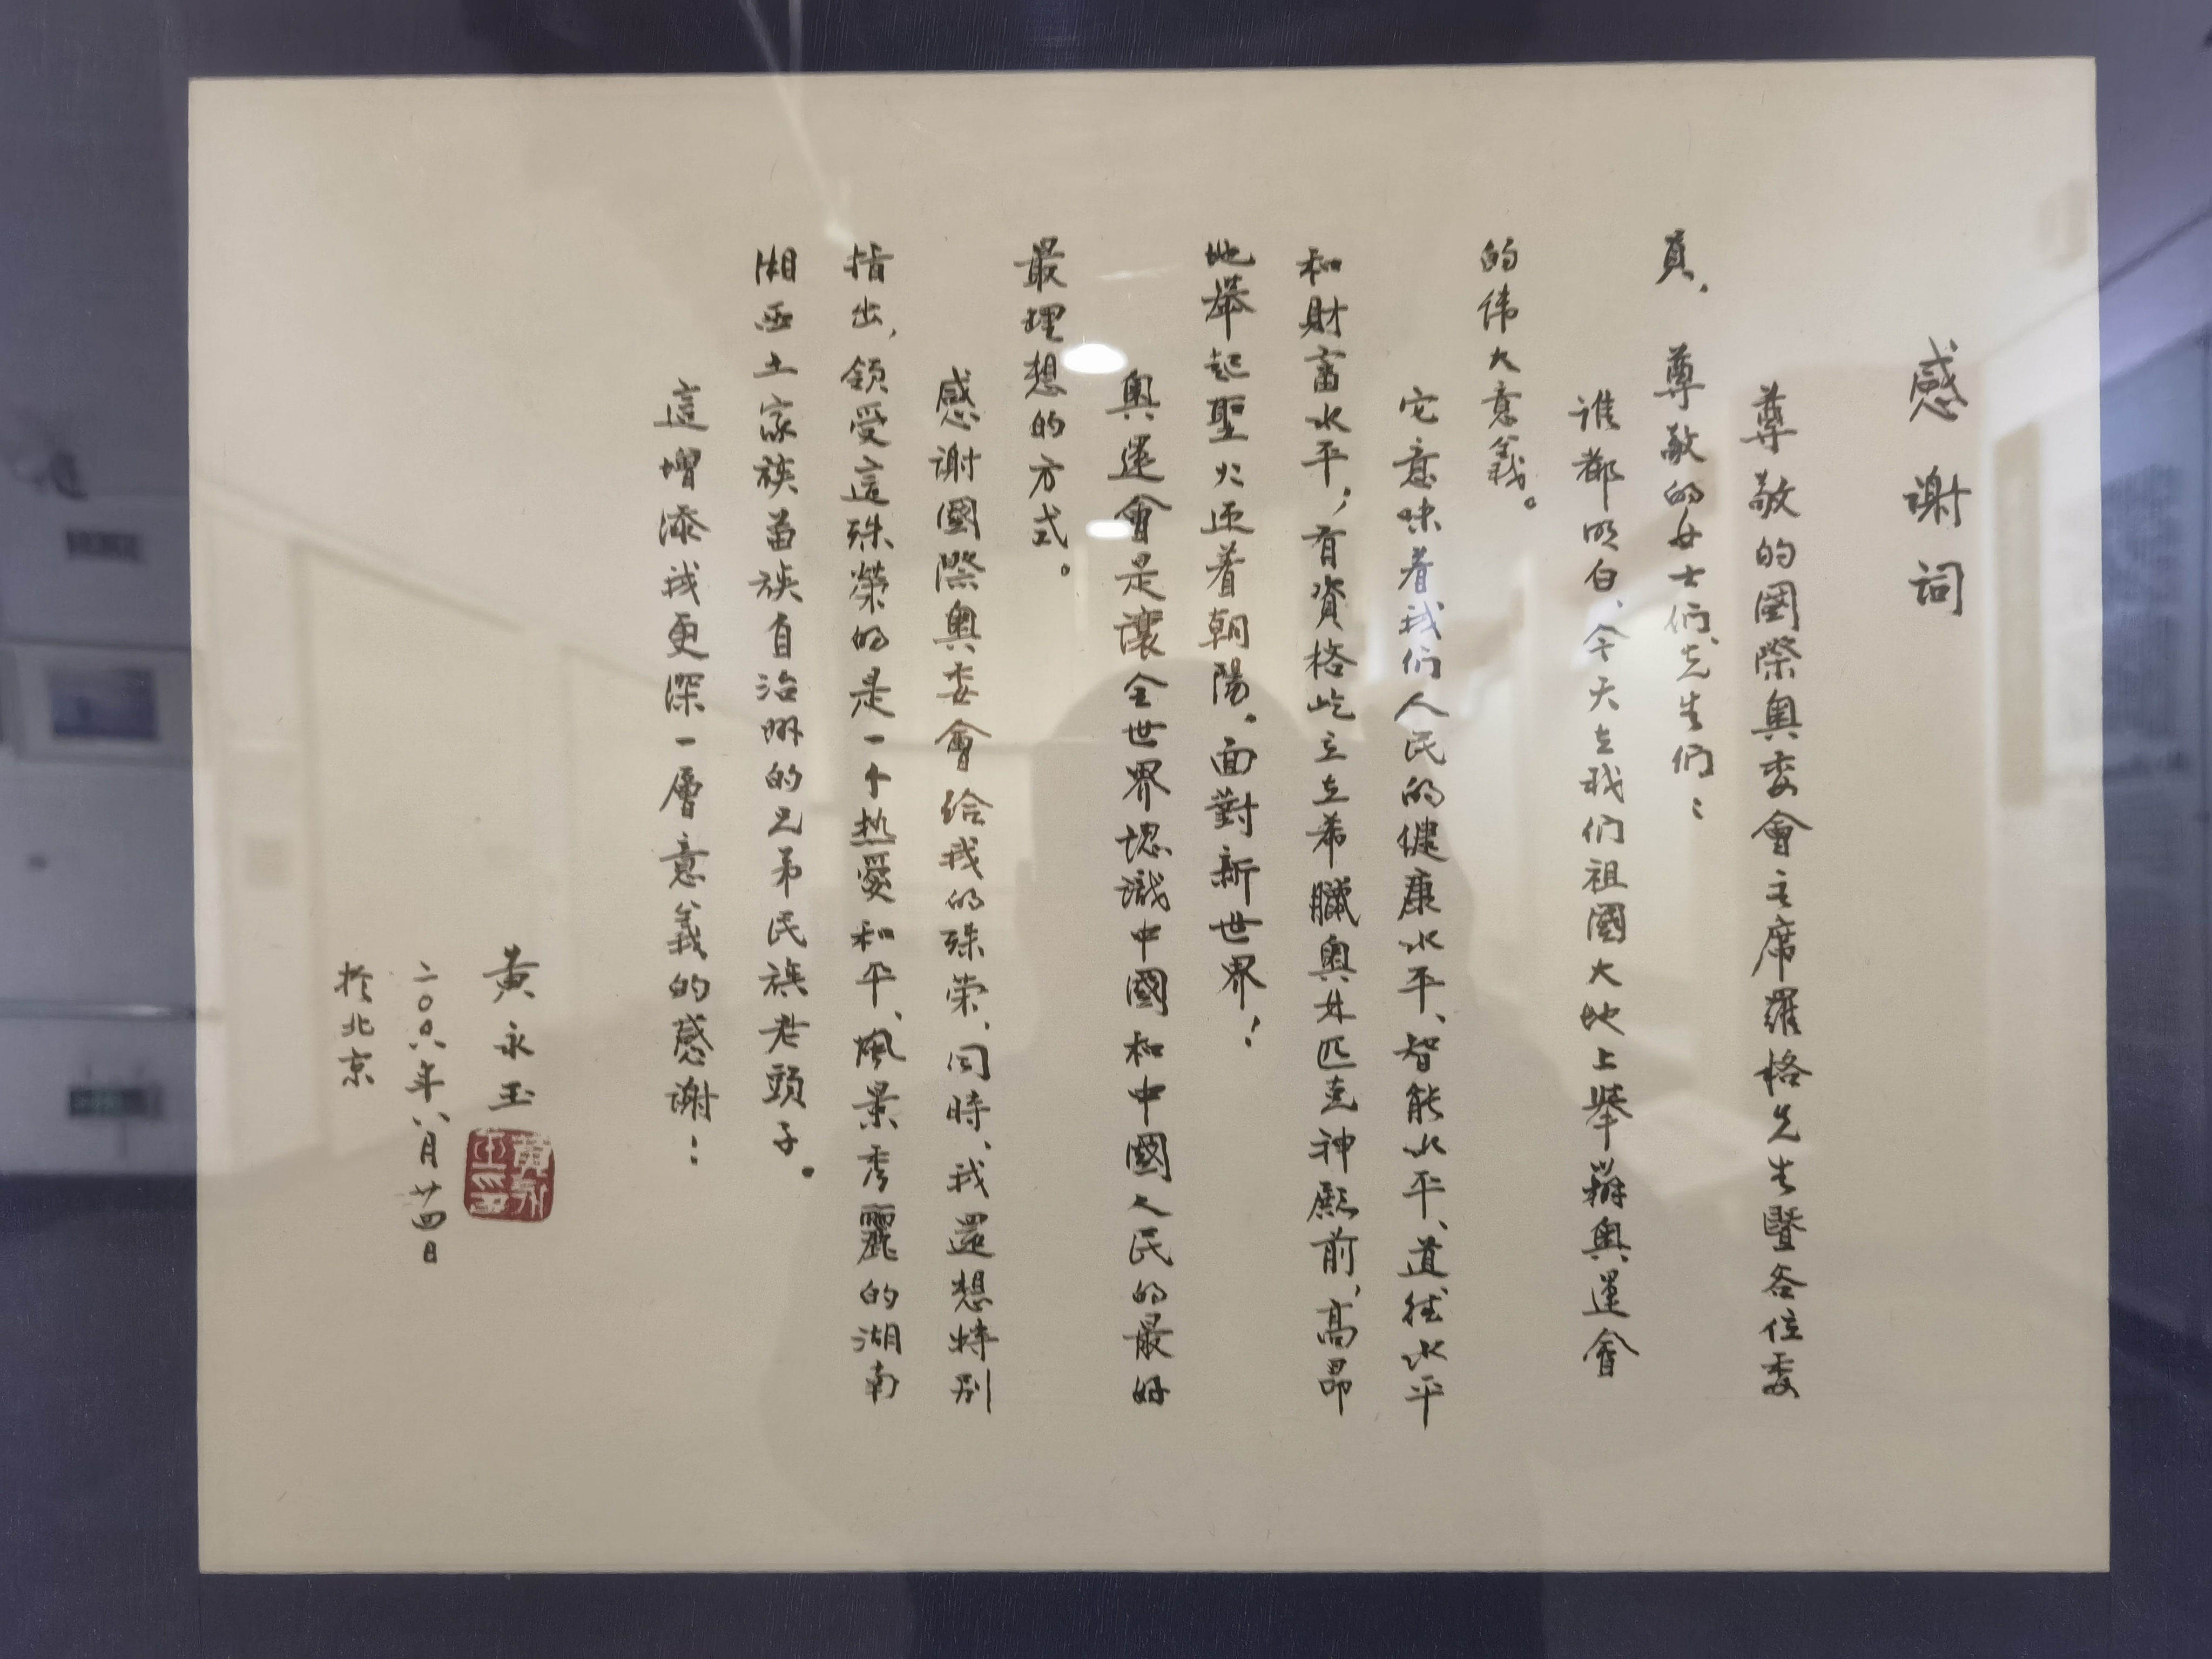 感謝詞
尊敬的國際奧委會主席羅格先生暨各位委
員、尊敬的女士们、先生们：
谁都明白、今天在我们祖國大地上舉辦奧運會
的伟大意義。
它意味着我们人民的健康水平、智能水平、道德水平
和財富水平，有資格屹立在希臘奧林匹克神殿前，高昂
地舉起聖火迎着朝陽。面對新世界！
奧運會是讓全世界認識中國和中國人民的最好
最理想的方式。
感謝國際奧委會给我的殊荣、同時、我還想特别
指出，领受這殊榮的是一个热愛和平、風景秀麗的湖南
湘西土家族苗族自治州的兄弟民族老頭子。
這增添我更深一層意義的感謝！
黄永玉
二〇〇八年八月廿四日
於北京
黄永玉印